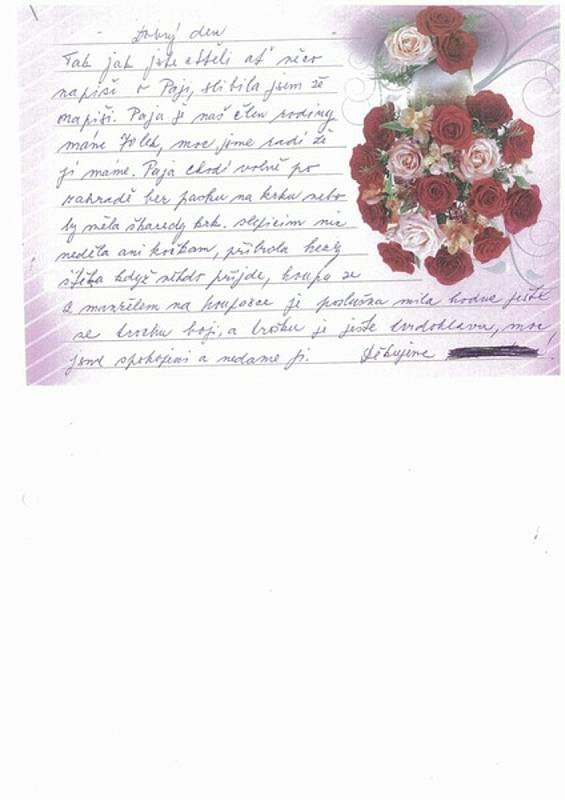 Dobrý den
Tak jak jste chtěli ať něco
napíši o Paji, slíbila jsem že
napíši. Paja je naš člen rodiny
máme let, moc jsme radi že
ji máme. Paja chodí volně po
zahradě bez pasku na krku nebo
by měla škaredy krk. slepicim nic
neděla ani kočkam, přibrala hezky
štěka když někdo přijde, koupa se
s manželem na koupačce je poslušna mila hodne ještě
se trochu boji, a trošku je ještě tvrdohlava, moc
jsme spokojeni a nedame ji. Děkujeme !